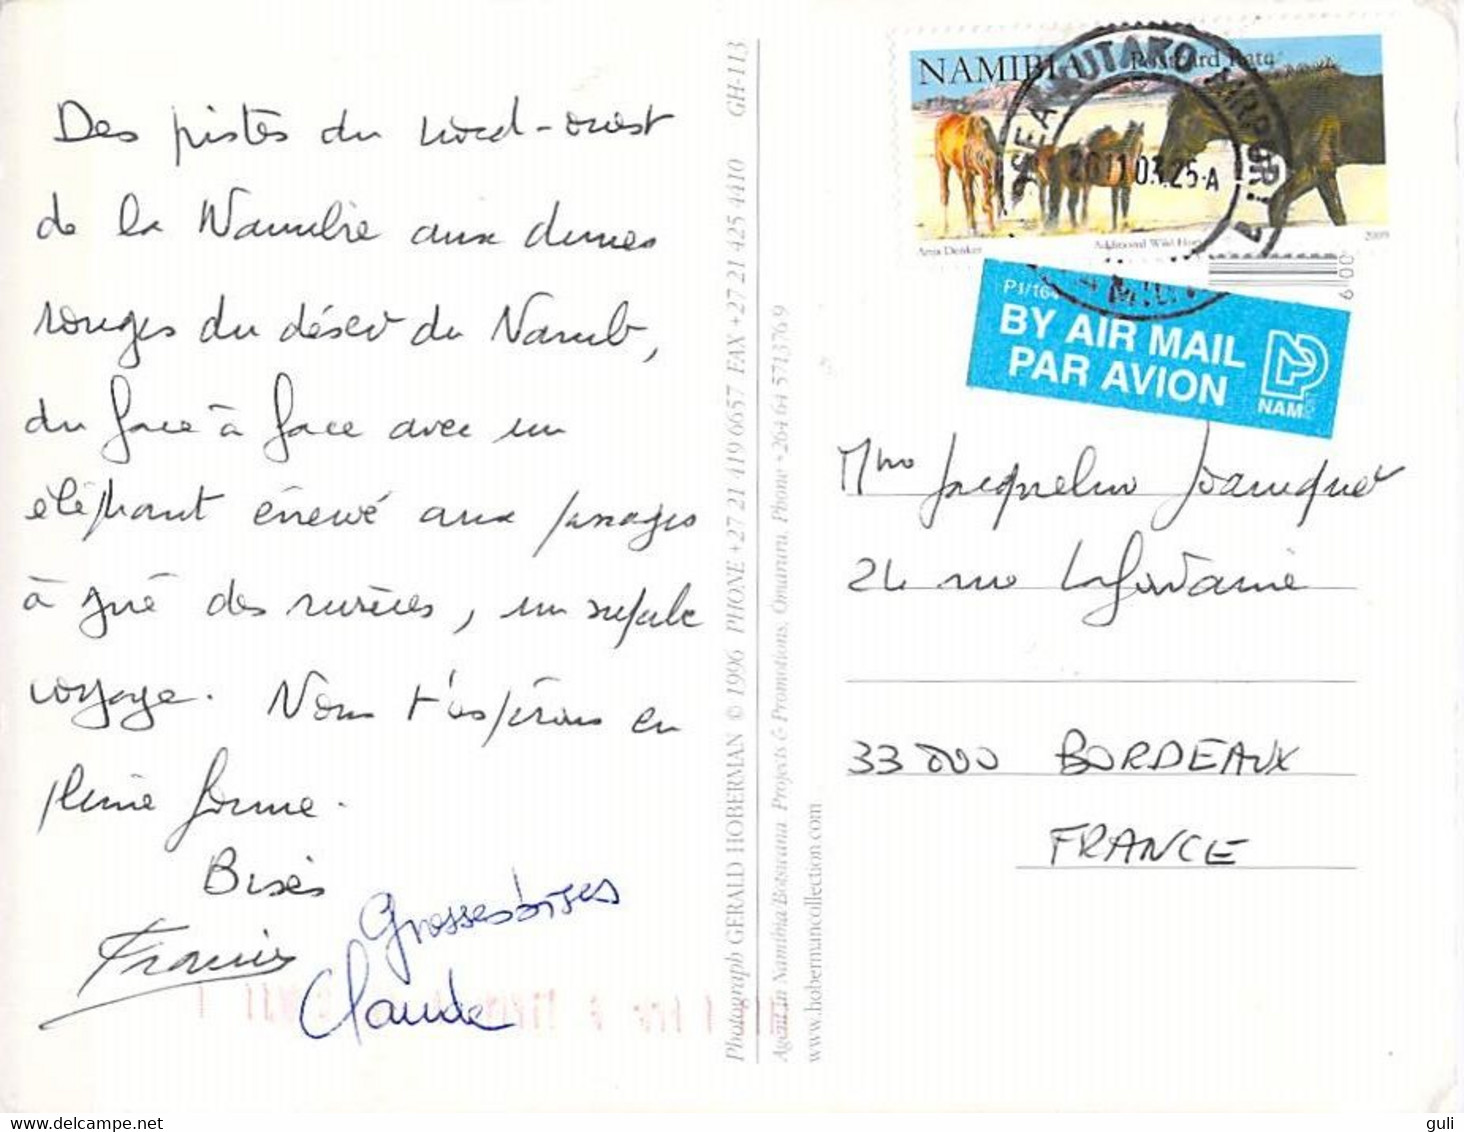 Des pistes du nord-ouest
de la Namibie aux dunes
rouges du désert du Namib,
du face à face avec un
éléphant énervé aux passages
à gué des rivières, un superbe
voyage. Nous t'espérons en
pleine forme.
Bises
Francis
Grosses bises
Claude
Photograph GERALD HOBERMAN © 1996 PHONE +27 21 419 6657 FAX +27 21 425 4410 GH-113
Agent in Namibia/Botswana Projects & Promotions, Omaruru, Phone +264 64 571376/9
www.hobermancollection.com
NAMIBIA Postcard Rate
Anja Denker Additional Wild 2009
AIRPORT
2011 03.25-A
P1/164
BY AIR MAIL
PAR AVION
NAM
Mme Jacqueline
24 rue Lafontaine
33000 BORDEAUX
FRANCE
guli